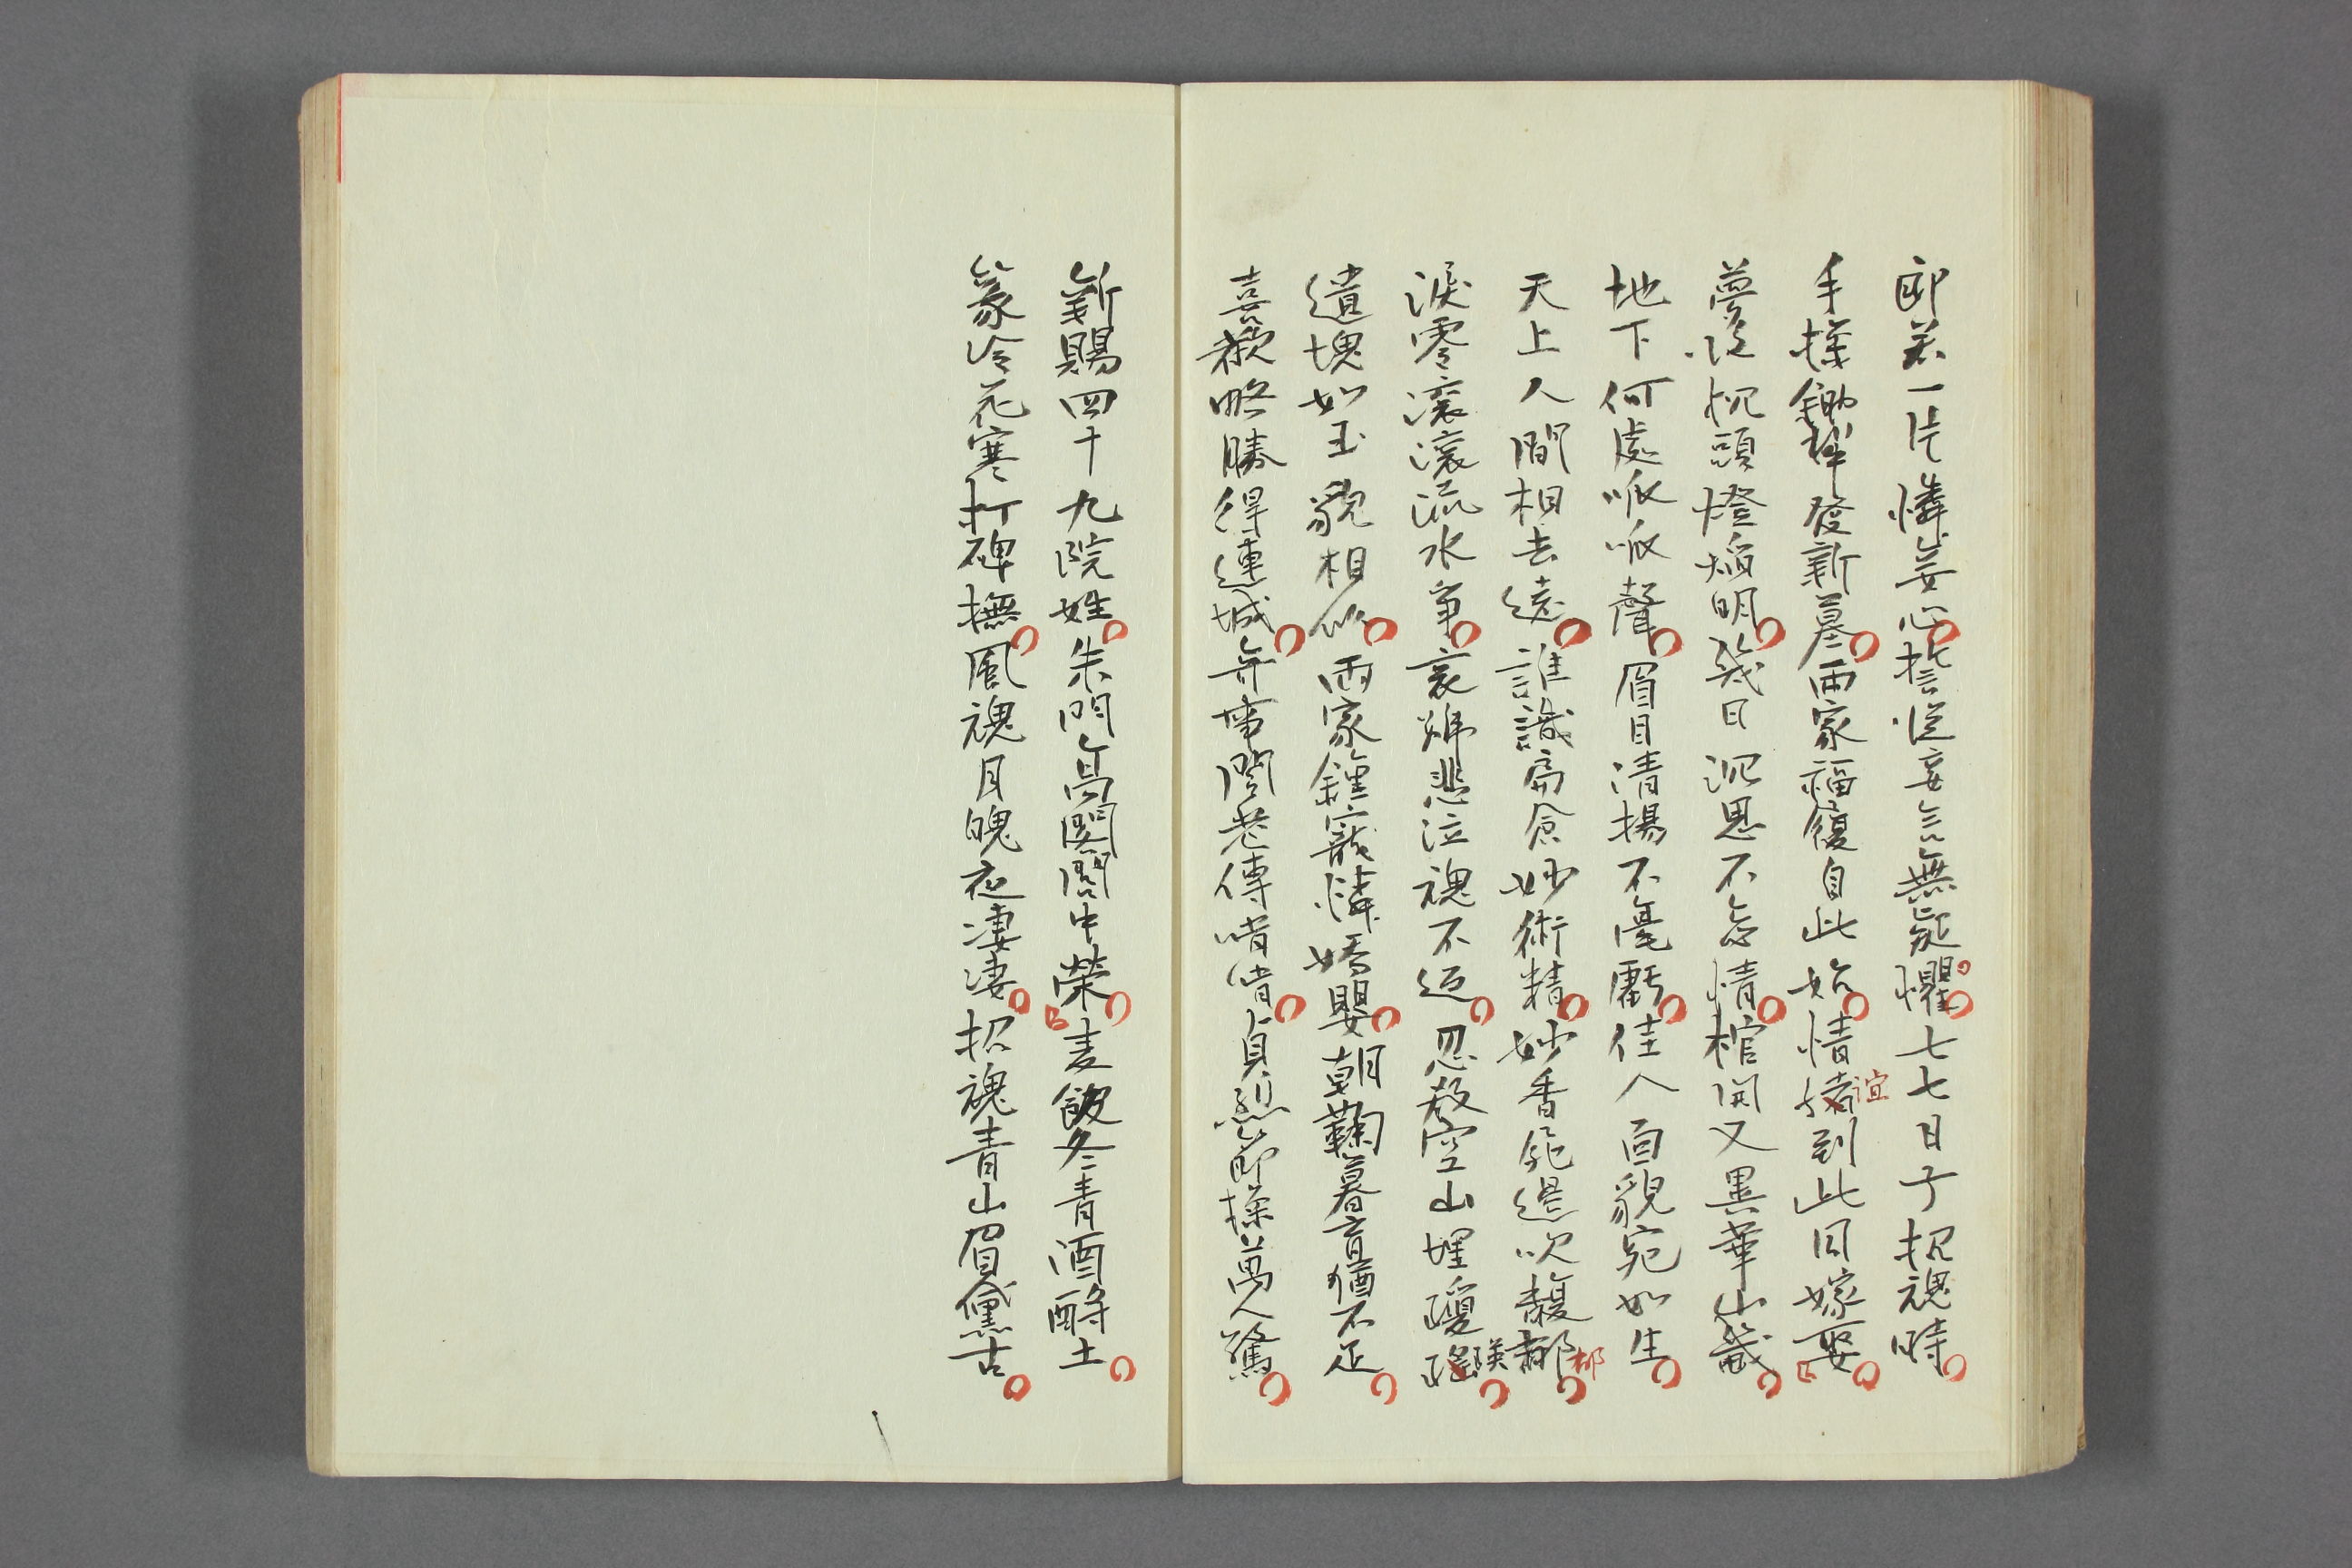 郎若一片憐妾心誓從妾言無疑懼七七日子招魂時
手揮鋤鍬發新墓兩家福復自此始情緒誼到此同嫁娶
夢從枕頭燈焰明幾日沉思不怠情棺開又異華山畿
地下何處呱呱聲眉目清揚不毫虧佳人面貌宛如生
天上人間相去遠誰識扁倉妙術精妙香飛邊吹馥郁郁
淚零滾滾流水爭哀號悲泣魂不返忍教空山埋瓊瑤瑛
遺塊如玉貌相似兩家鍾寵憐嬌嬰朝鞠暮育猶不足
喜歡略勝得連城奇事閭巷傳嘖嘖貞烈節操萬人驚
新賜四十九院姓朱門高閥閥中榮麥飯冬青酒酹土
篆冷花寒打碑撫風魂月魄夜凄凄招魂青山眉黛古